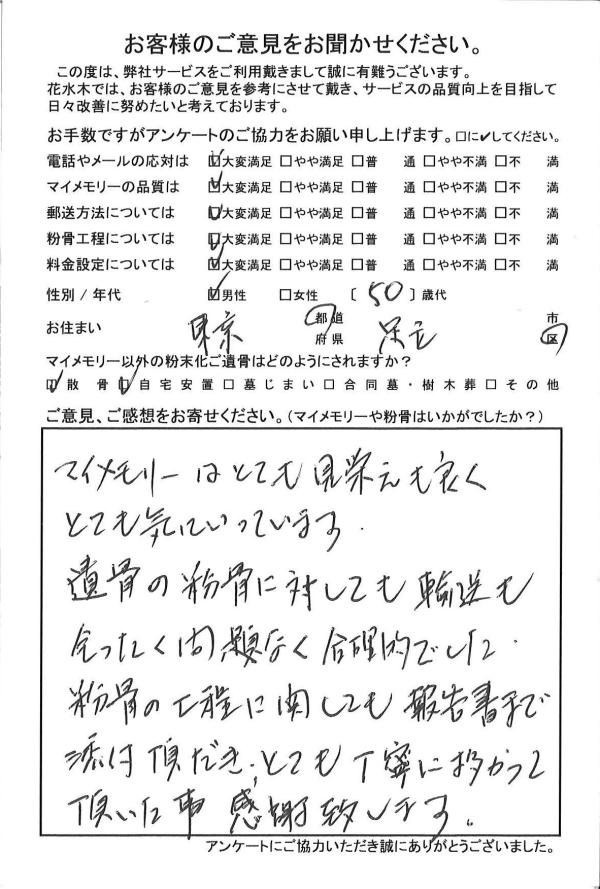 お客様のご意見をお聞かせください。
この度は、弊社サービスをご利用戴きまして誠に有難うございます。
花水木では、お客様のご意見を参考にさせて戴き、サービスの品質向上を目指して
日々改善に努めたいと考えております。
お手数ですがアンケートのご協力をお願い申し上げます。□に✔してください。
電話やメールの応対は ☑大変満足 □やや満足 □普 通 □やや不満 □不 満
マイメモリーの品質は ☑大変満足 □やや満足 □普 通 □やや不満 □不 満
郵送方法については ☑大変満足 □やや満足 □普 通 □やや不満 □不 満
粉骨工程については ☑大変満足 □やや満足 □普 通 □やや不満 □不 満
料金設定については ☑大変満足 □やや満足 □普 通 □やや不満 □不 満
性別 / 年代 ☑男性 □女性 〔 50 〕歳代
お住まい 東京 都道府県 足立 市区
マイメモリー以外の粉末化ご遺骨はどのようにされますか?
☑散 骨 ☑自宅安置 □墓じまい □合同墓・樹木葬 □その他
ご意見、ご感想をお寄せください。(マイメモリーや粉骨はいかがでしたか?)
マイメモリーはとても見栄えも良く
とても気にいっています.
遺骨の粉骨に対しても輸送も
全ったく問題なく合理的でした.
粉骨の工程に関しても報告書まで
添付頂だき、とても丁寧に扱かって
頂いた事感謝致します。
アンケートにご協力いただき誠にありがとうございました。